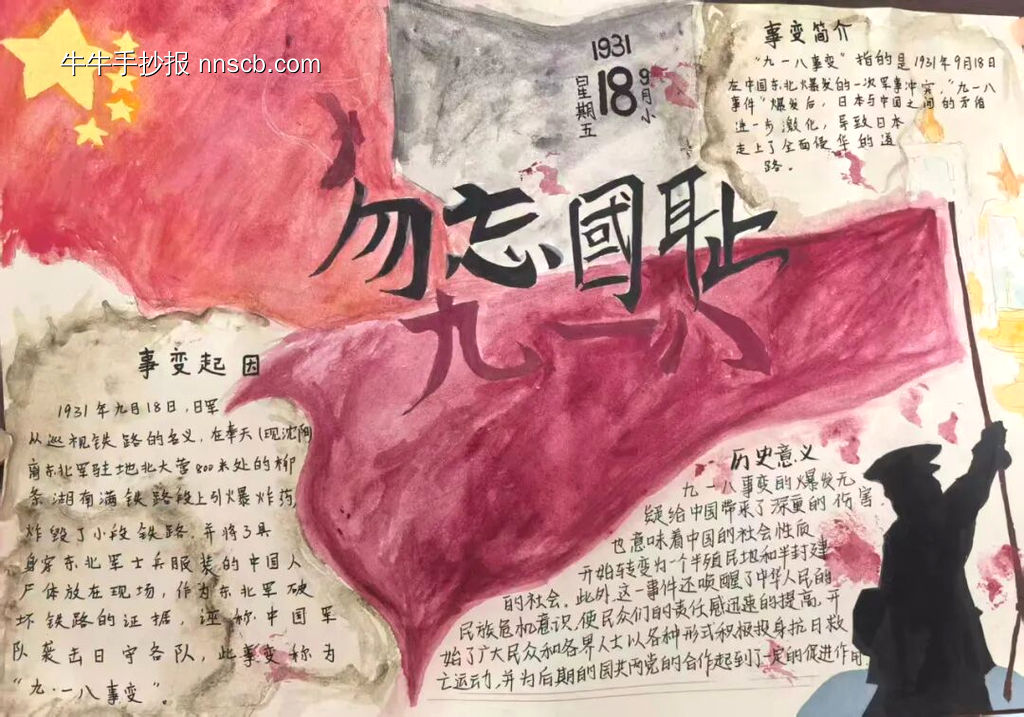 牛牛手抄报 nnscb.com
1931
星期五
18
9月小
勿忘國耻
九一八
事变简介
“九一八事变”指的是1931年9月18日
在中国东北爆发的一次军事冲突,“九一八
事件”爆发后,日本与中国之间的矛盾
进一步激化,导致日本
走上了全面侵华的道
路。
事变起因
1931年九月18日,日军
从巡视铁路的名义,在奉天(现沈阳)
离东北军驻地北大营800米处的柳
条湖南满铁路段上引爆炸药,
炸毁了小段铁路,并将3具
身穿东北军士兵服装的中国人
尸体放在现场,作为东北军破
坏铁路的证据,诬称中国军
队袭击日守各队,此事变称为
“九·一八事变”。
历史意义
九一八事变的爆发无
疑给中国带来了深重的伤害.
也意味着中国的社会性质
开始转变为一个半殖民地和半封建
的社会。此外,这一事件还唤醒了中华人民的
民族危机意识,使民众们的责任感迅速的提高,开
始了广大民众和各界人士以各种形式积极投身抗日救
亡运动,并为后期的国共两党的合作起到了一定的促进作用.